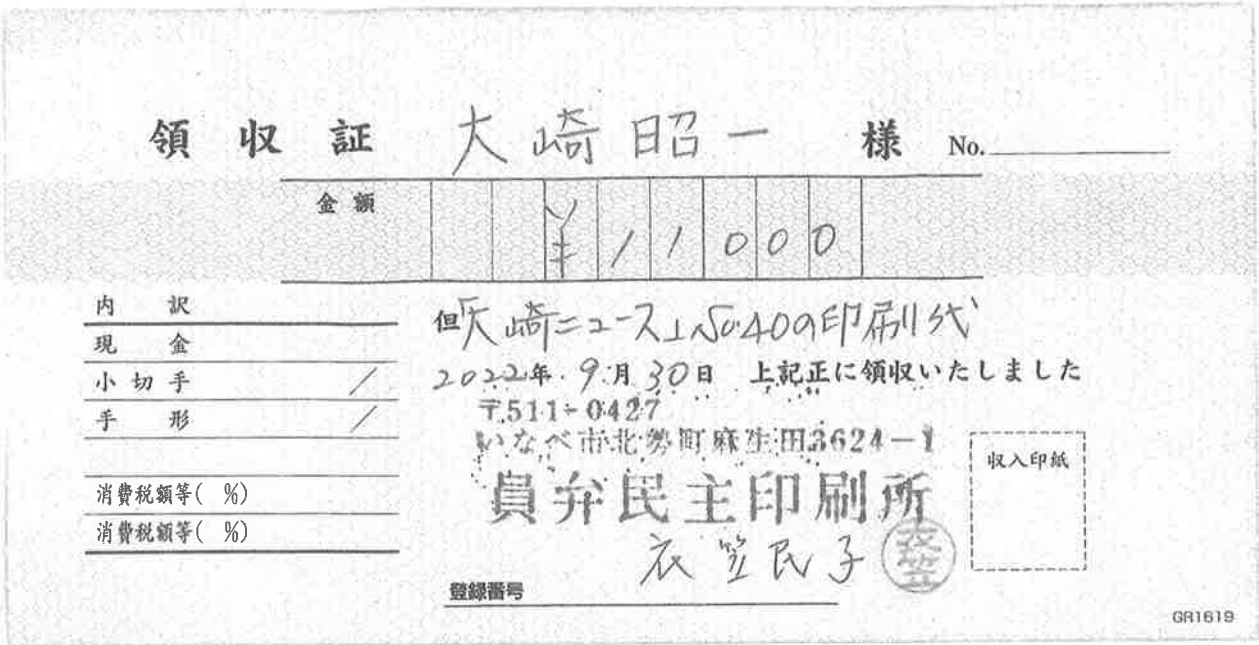 領収証 大崎昭一 様 No.
金額 ¥11000
内訳
現金
小切手 /
手形 /
消費税額等( %)
消費税額等( %)
但 大崎ニュース No.40の印刷代
2022年 9月 30日 上記正に領収いたしました
〒511-0427
いなべ市北勢町麻生田3624-1
員弁民主印刷所
衣笠民子 衣笠
収入印紙
登録番号
GR1619